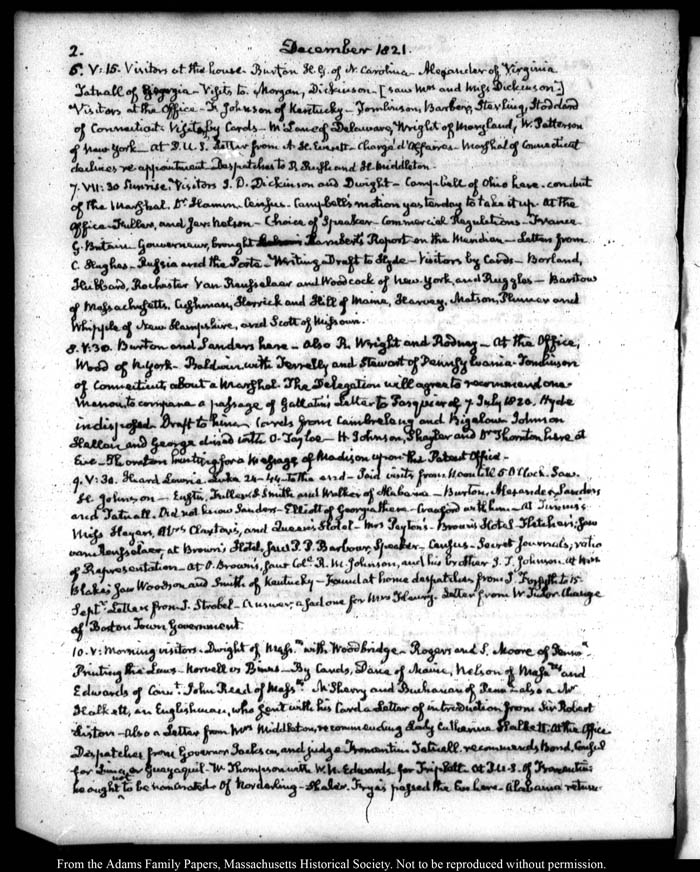 2. December 1821.
6. V:15. Visitors at the house. Burton H. G. of N. Carolina - Alexander of Virginia
Tatnall of Georgia - Visits to Morgan, Dickinson - [saw Mrs and Miss Dickinson]
Visitors at the Office - F. Johnson of Kentucky - Tomlinson, Barber, Sterling, Stoddard
of Connecticut. Visits by Cards - McLane of Delaware, Wright of Maryland, W. Patterson
of New York - at P.U.S. Letter from A. H. Everett - Chargé d'Affaires - Marshal of Connecticut
declines re-appointment. Despatches to R. Rush and H. Middleton.
7. VII:30 Sunrise. Visitors J. D. Dickinson and Dwight - Campbell of Ohio here. conduct
of the Marshal. Dr. Hamm. Census - Campbell's motion yesterday to take it up. At the
Office - Fuller, and Jer. Nelson - Choice of Speaker - Commercial Regulations - France
G. Britain Gouverneur, brought Lambert's Report on the Meridian - Letters from
C. Hughes - Russia and the Porte - Writing Draft to Hyde - Visitors by Cards - Borland,
Hubbard, Rochester Van Rensselaer and Woodcock of New York, and Ruggles - Barstow
of Massachusetts, Cushman, Herrick and Hill of Maine, Harvey, Matson, Plumer and
Whipple of New Hampshire, and Scott of Missouri.
8. V:30. Burton and Sanders here - Also R. Wright and Rodney - At the Office,
Wood of N. York - Baldwin with Farrelly and Stewart of Pennsylvania - Tomlinson
of Connecticut about a Marshal. The Delegation will agree to recommend one
to compare a passage of Gallatin's Letter to Pasquier of 7 July 1820. Hyde
indisposed. Draft to him. Cards from Cambreleng and Bigelow. Johnson
Hellen and George dined with O. Tayloe - H. Johnson, Shayler and Dr Thornton here at
Eve - Thornton hunting for a message of Madison upon the Patent Office -
9. V:30. Heard Lowrie Luke 24-44 to the end - Paid visits from Noon till 5 O'Clock. Saw
H. Johnson - Eustis, Fuller & Smith and Walker of Alabama - Burton, Alexander, Sanders
and Tatnall. Did not know Sanders - Elliott of Georgia there - Crawford with him - At
Miss Heyer, Mrs Clayton's, and Queen's Hotel - Mrs Peyton's - Brown's Hotel - Fletcher's; Saw
van Rensselaer, at Brown's Hotel, saw P. P. Barbour, Speaker - Census - Secret Journals, ratio
of Representation - At O. Brown's, saw Colo. R. M. Johnson, and his brother J. T. Johnson. At Mrs
Blake's saw Woodson and Smith of Kentucky - Found at home despatches from J. Forsyth to 15
Septr. Letter from J. Strobel - answer, a sad one for Mrs Fleury. Letter from W. Tudor Change
of Boston Town Government
10. V: Morning visitors - Dwight of Masss. with Woodbridge - Rogers and S. Moore of Pennsa.
Printing the Laws - Norvell or Binns - By Cards, Dane of Maine, Nelson of Masss. and
Edwards of Connt. John Reed of Masss. McSherry and Buchanan of Penna - also a Mr
Halkett, an Englishman, who sent with his Card a Letter of introduction from Sir Robert
Liston - Also a Letter from Mrs Middleton, recommending Lady Catherine Halkett. At the Office
Despatches from Governor Jackson, and judge Fromentin Tatnall recommends Bond, Consul
for Lima, or Guayaquil - W. Thompson with W. H. Edwards for Triplett - At P.U.S. of Fromentin:
he ought not to be nominated. Of Norderling - Shaler. Frye's passed the Eve here - Alabama return
From the Adams Family Papers, Massachusetts Historical Society. Not to be reproduced without permission.